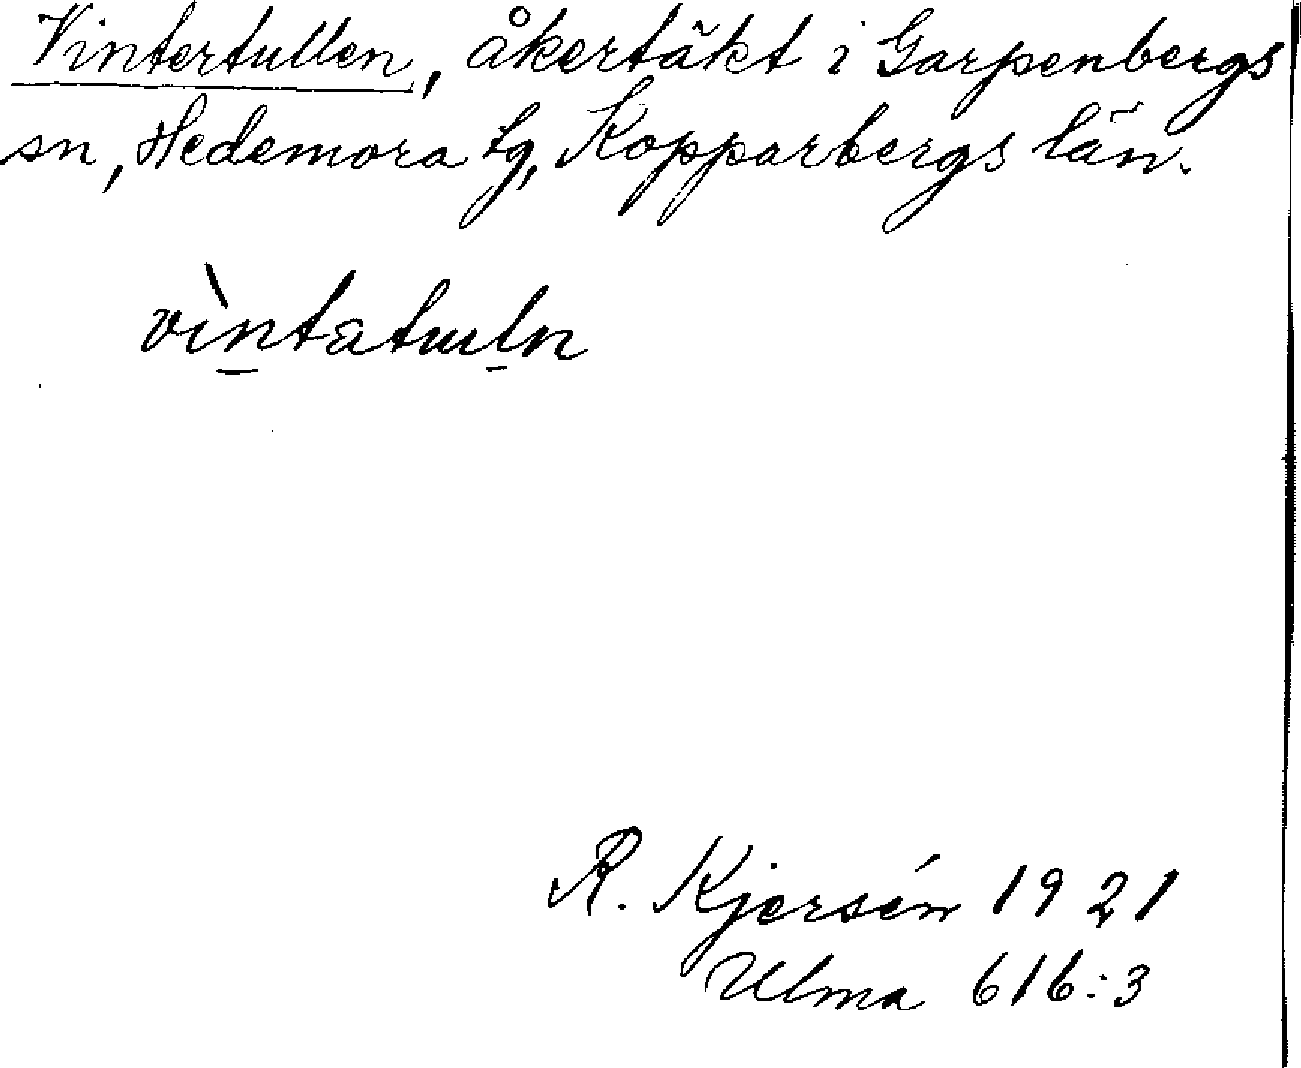 Vintertullen, åkertäkt i Garpenbergs
sn, Hedemora tg, Kopparbergs län.
R. Kjersén 1921
Ulma 616:3